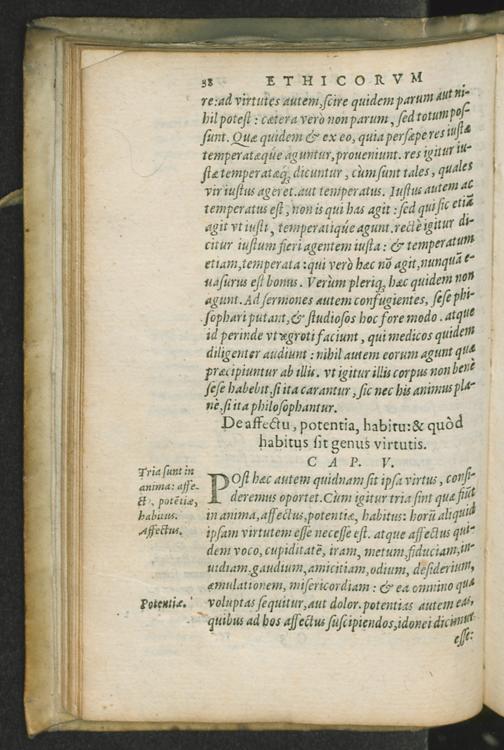 38 ETHICORVM
re: ad virtutes autem, scire quidem parum aut ni-
hil potest: cætera verò non parum, sed totum pos-
sunt. Quæ quidem & ex eo, quia persæpe res iustæ
temperatæq́ue aguntur, proueniunt. res igitur iu-
stæ temperatæq́; dicuntur, cùm sunt tales, quales
vir iustus ageret, aut temperatus. Iustus autem ac
temperatus est, non is qui has agit: sed qui sic etiã
agit vt iusti, temperatiq́ue agunt. rectè igitur di-
citur iustum fieri agentem iusta: & temperatum
etiam, temperata: qui verò hæc nõ agit, nunquã e-
uasurus est bonus. Verùm pleriq; hæc quidem non
agunt. Ad sermones autem confugientes, sese phi-
sophari putant, & studiosos hoc fore modo. atque
id perinde vt ægroti faciunt, qui medicos quidem
diligenter audiunt: nihil autem eorum agunt quæ
præcipiuntur ab illis. vt igitur illis corpus non benè
sese habebit, si ita carantur, sic nec his animus pla-
nè, si ita philosophantur.
De affectu, potentia, habitu: & quòd
habitus sit genus virtutis.
CAP. V.
Tria sunt in
anima: affe-
ct9, potẽtiæ,
habitus.
Affectus.
POst hæc autem quidnam sit ipsa virtus, consi-
deremus oportet. Cùm igitur tria sint quæ fiũt
in anima, affectus, potentiæ, habitus: horũ aliquid
ipsam virtutem esse necesse est. atque affectus qui-
dem voco, cupiditatẽ, iram, metum, fiduciam, in-
uidiam, gaudium, amicitiam, odium, desiderium,
æmulationem, misericordiam: & ea omnino quæ
Potentiæ.
voluptas sequitur, aut dolor. potentias autem eas,
quibus ad hos affectus suscipiendos, idonei dicimur
esse: